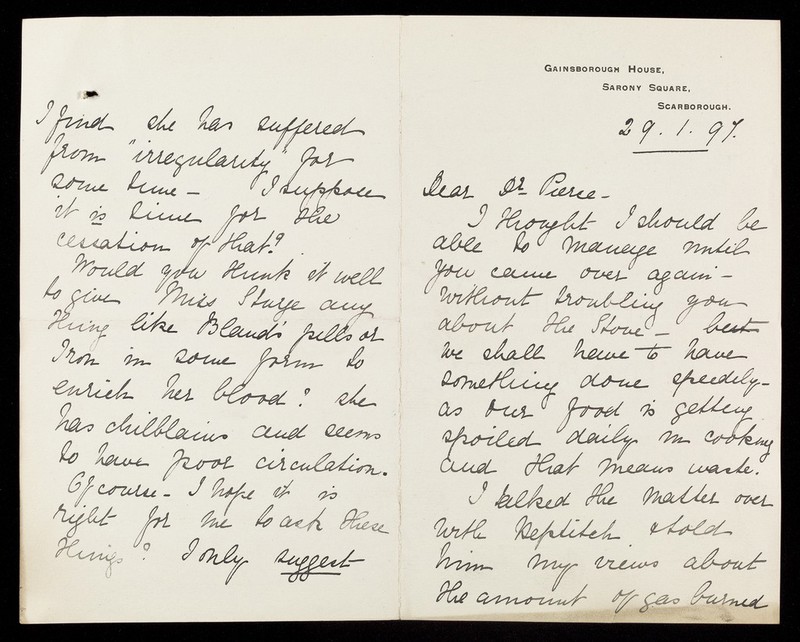 GAINSBOROUGH HOUSE,
SARONY SQUARE,
SCARBOROUGH.
29.1.97.
Dear Dr Pierce -
I thought I should be
able to manage until
you came over again -
without troubling you
about the Stove - but
we shall have to have
something done speedily -
as our food is getting
spoiled daily in cooking
and that means waste.
I talked the matter over
with & told
him my views about
the amount of gas burned
I find she has suffered
from "irregularity" for
some time - I suppose
it is time for the
cessation of that?
Would you think it well
to give Miss Sturge any
thing like Blaud's pills or
Iron in some form to
enrich her blood? she
has chilblains and seems
to have poor circulation.
Of course - I hope it is
right for me to ask these
things? I only suggest